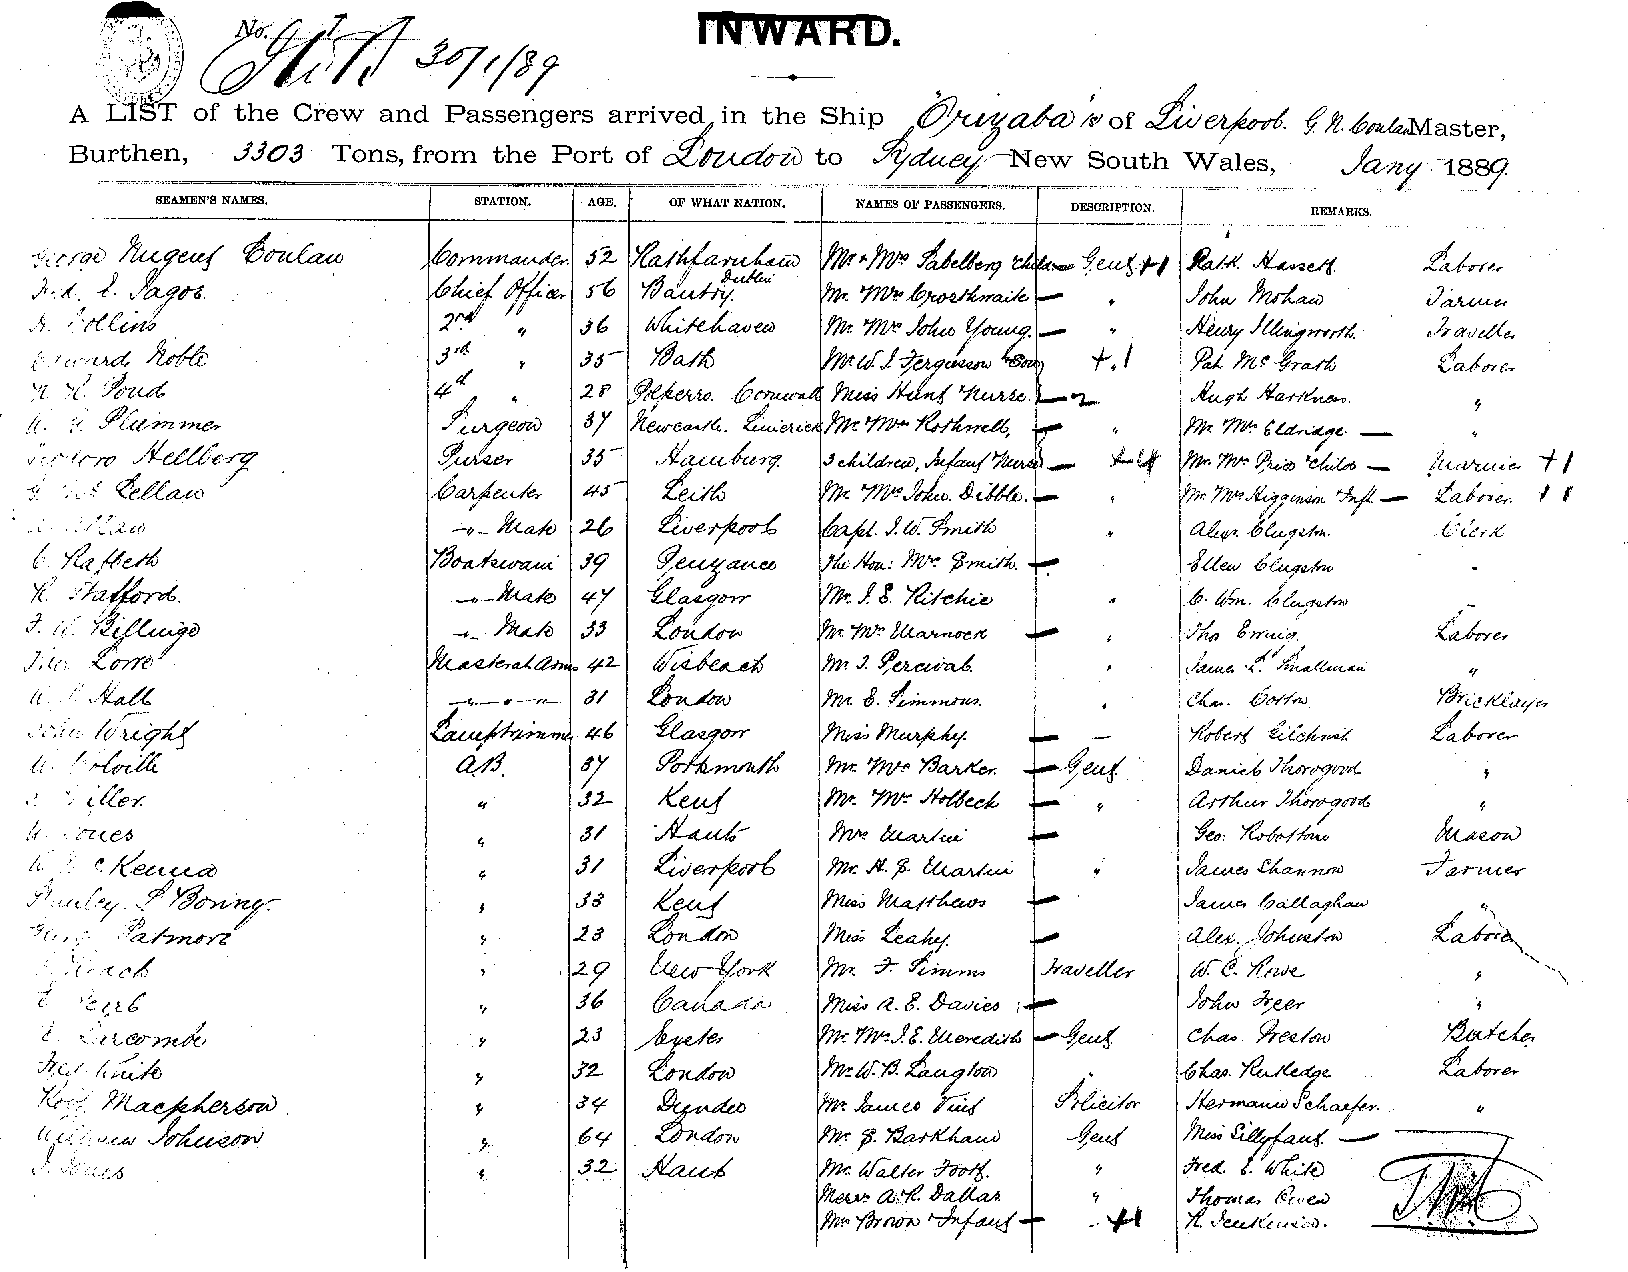 INWARD.
No. 30/1/89
A LIST of the Crew and Passengers arrived in the Ship "Orizaba" of Liverpool. G. N. Conlan Master,
Burthen, 3303 Tons, from the Port of London to Sydney New South Wales, Jany 1889.
SEAMEN'S NAMES. STATION. AGE. OF WHAT NATION. NAMES OF PASSENGERS. DESCRIPTION. REMARKS.
George Nugent Conlan Commander 52 Rathfarnham Dublin Mr & Mrs Sabelberg child Gent +1 Patk. Hassett Laborer
Chief Officer 56 Bantry. Mr. Mrs Crosthwaite — " John Mohan Farmer
Collins 2nd " 36 Whitehaven Mr Mrs John Young. — " Henry Illingworth. Traveller
Edward Noble 3rd " 35 Bath Mr W. J. Fergusson & Son +.1 Pat McGrath Laborer
4th " 28 Polperro. Cornwall Miss Hunt Nurse. — 2 Hugh Harkness. "
Plummer Surgeon 37 Newcastle. Limerick Mr Mrs Rothwell, — " Mr. Mrs Eldridge — "
Hellberg Purser 35 Hamburg. 3 children, Infant Nurse — Mr Mrs Price & child — Marine +1
McLellan Carpenter 45 Leith Mr Mrs John Dibble. — " Mr Mrs Higginson Inft — Laborer
-"- Mate 26 Liverpool Capt. J. W. Smith " Alexr. Clugston. Clerk
C. Boatswain 39 Penzance The Hon: Mrs Smith. — Ellen Clugston -
R. Stafford. -"- Mate 47 Glasgow Mr. J. E. Ritchie " C. Wm. Clugston -
F. W. Billinge -"- Mate 33 London Mr Mrs Warnock — " Thos Laborer
Master at Arms 42 Wisbeach Mr J. Percival. " James L. Smallman "
W. Hall -"-"-"- 31 London Mr E. Simmons. " Chas. Cotton. Bricklayer
John Wright Lamptrimmer 46 Glasgow Miss Murphy. — - Robert Gilchrist Laborer
W. Colville A.B. 37 Portsmouth Mr Mrs Barker. — Gent Daniel Thorogood "
" 32 Kent Mr. Mrs Holbech — " Arthur Thorogood "
W. Jones " 31 Hants Mrs Martin — Geo. Robottom Mason
W. McKenna " 31 Liverpool Mr. H. E. Martin " James Shannon Farmer
Stanley S. Boning. " 33 Kent Miss Matthews — James Callaghan "
Patmore " 23 London Miss Leahy. — Alex. Johnston Laborer
" 29 New York Mr. F. Simms Traveller W. C. Rowe "
" 36 Canada Miss A. E. Davies — John Freer "
E. Larcombe " 23 Exeter Mr Mrs J. E. Meredith — Gent Chas. Preston Butcher
Fred White " 32 London Mr W. B. Langton " Chas. Rutledge Laborer
Robt. Macpherson " 34 Dundee Mr James Solicitor Hermann Schaefer. "
William Johnson " 64 London Mr. E. Barkham Gent Miss Lillyfant —
J. Jones " 32 Hants Mr. Walter Foott. " Fred. E. White
A. R. Dallas " Thomas Owen
Mrs Brown & Infant — +1 R. Jenkinson.